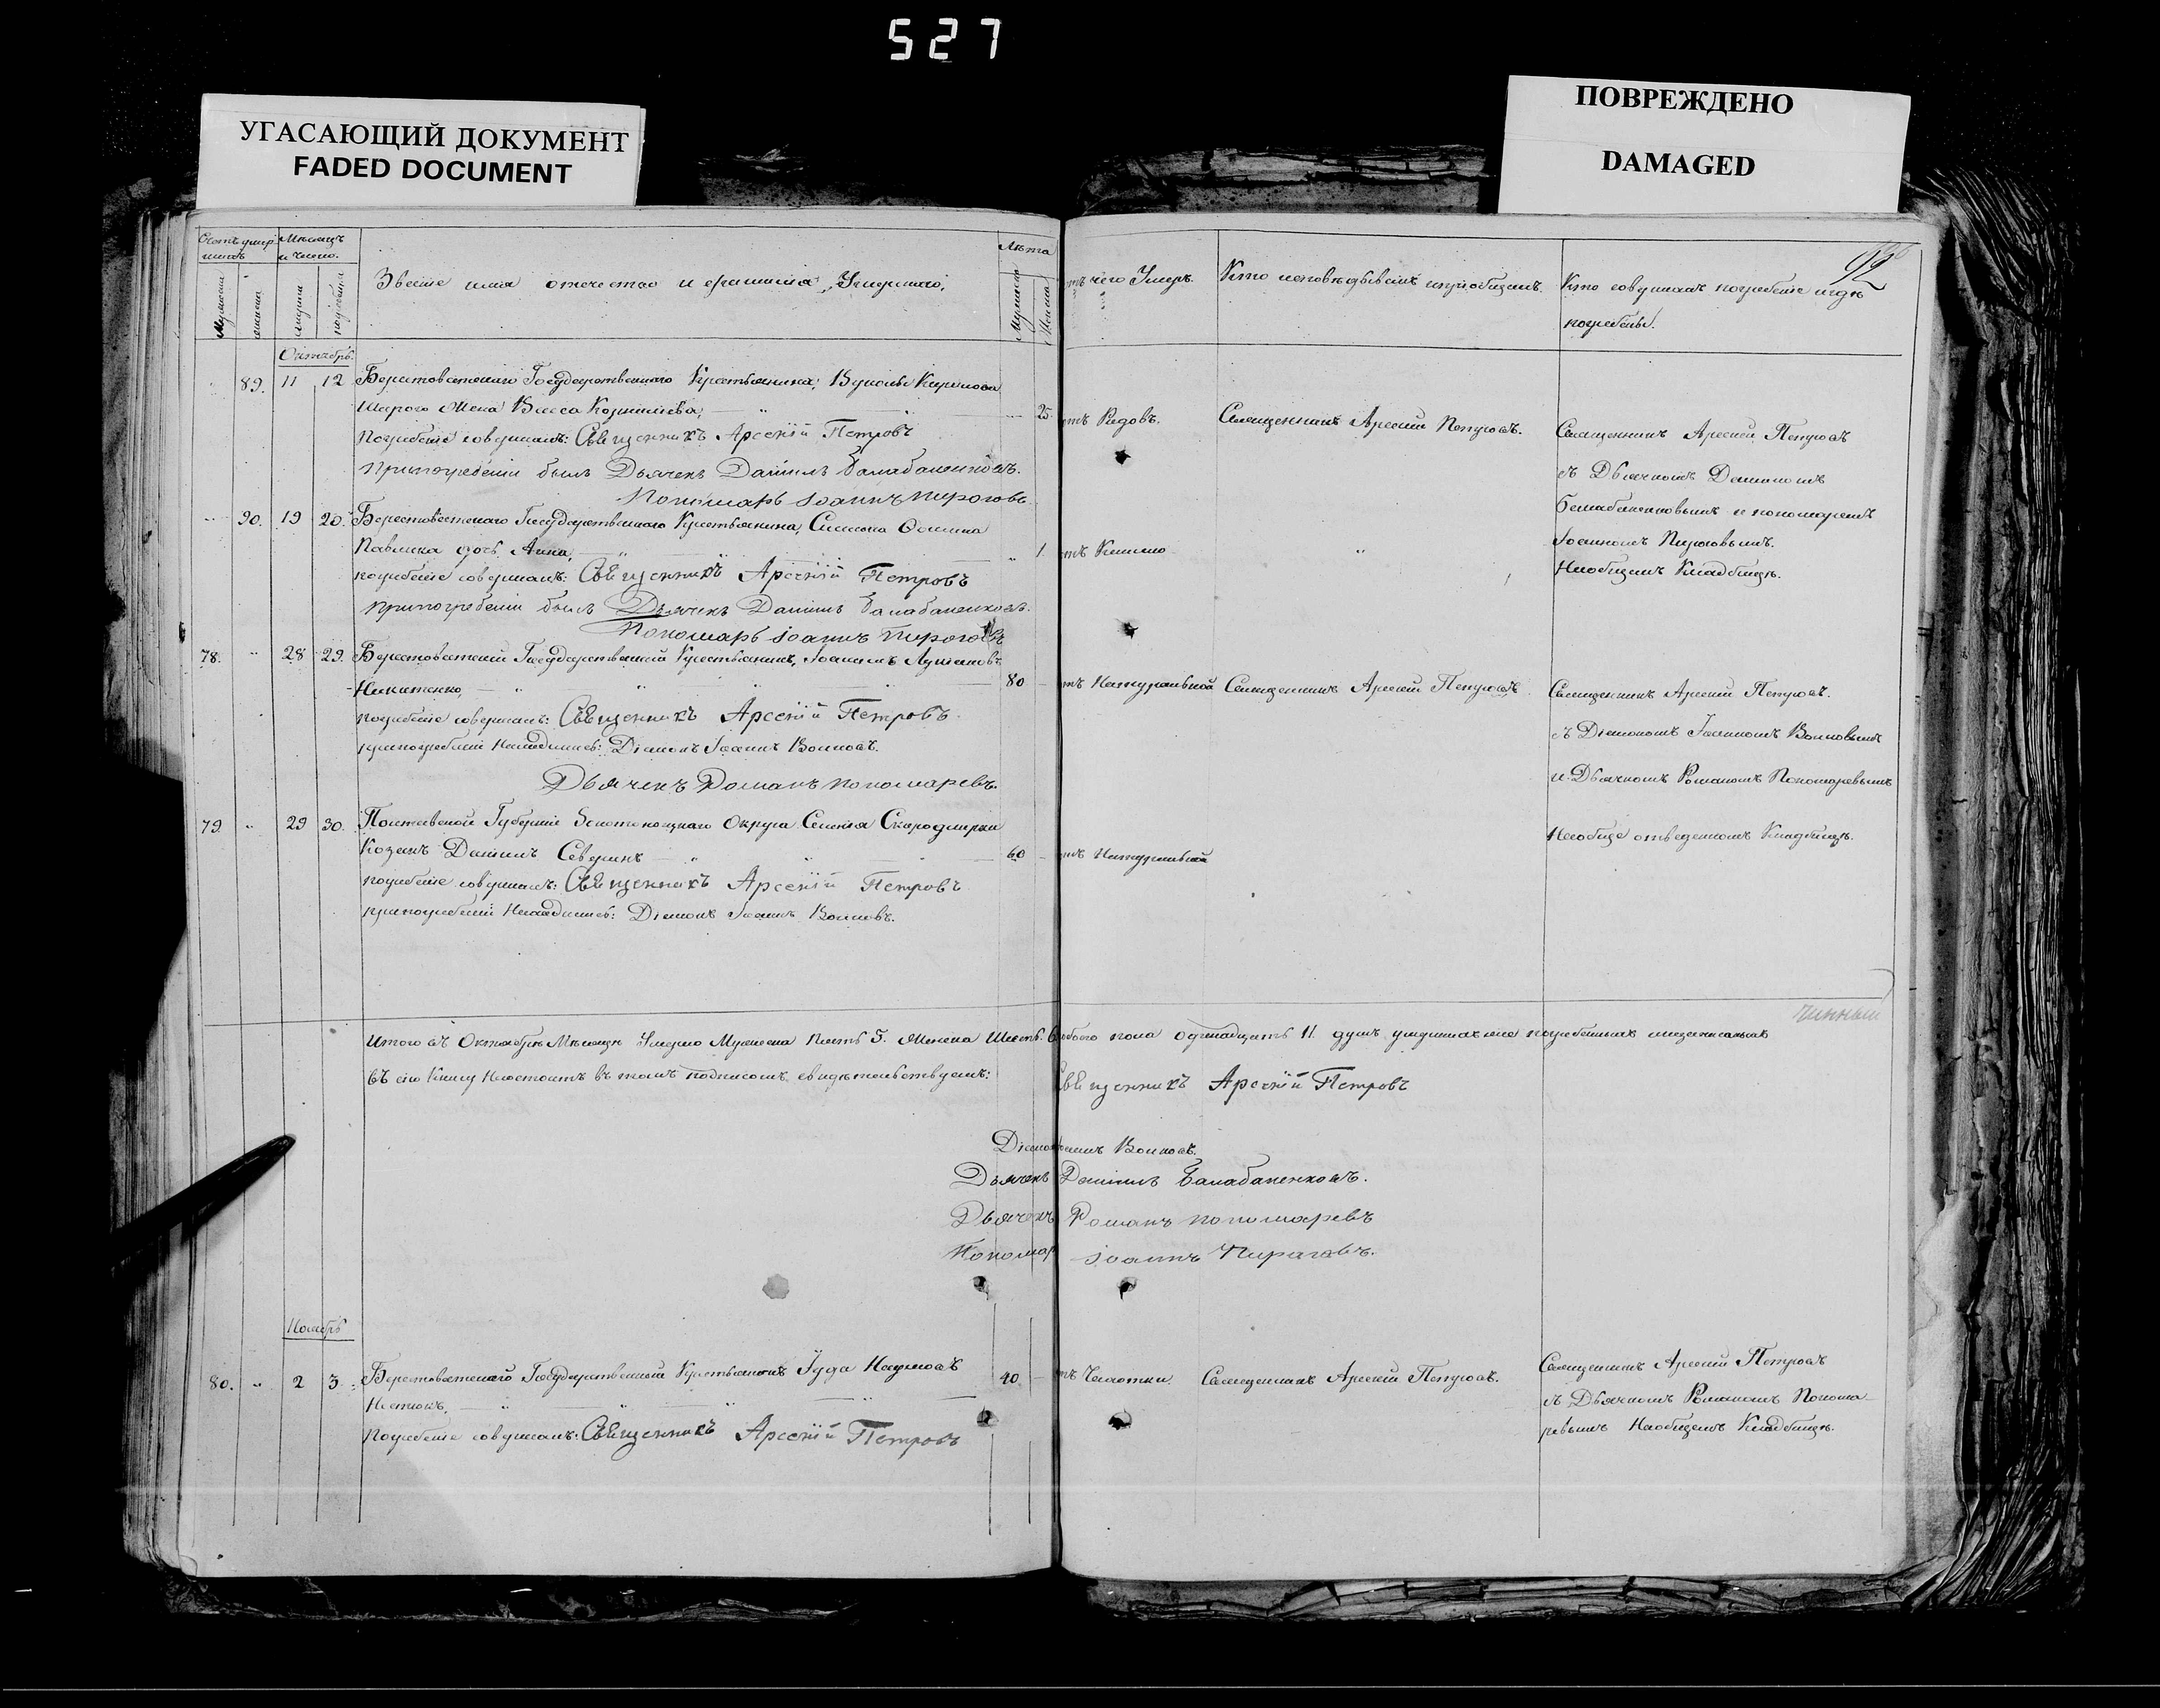 527
УГАСАЮЩИЙ ДОКУМЕНТ
FADED DOCUMENT
ПОВРЕЖДЕНО
DAMAGED
92
Счетъ умер-
шихъ
Мѣсяцъ
и число.
Званіе имя отечество и фамилія Умершаго.
Лѣта
отъ чего Умеръ.
Кто исповѣдывалъ и пріобщалъ.
Кто совершалъ погребеніе и гдѣ
погребены.
Октябрь.
89. 11 12 Берестоватскаго Государственнаго Крестьянина,
Жена Васса 25.
отъ Родовъ. Священникъ Арсеній Петровъ.
Погребеніе совершалъ: Священникъ Арсеній Петровъ
При погребеніи былъ Дьячекъ Даніилъ Балабаненковъ.
Пономарь Іоаннъ Пироговъ
Священникъ Арсеній Петровъ
съ Дьячкомъ Даніиломъ
Балабаненковымъ и пономаремъ
Іоанномъ Пироговымъ.
На общемъ Кладбищѣ.
90. 19 20. Берестоватскаго Государственнаго Крестьянина,
дочь Анна, 1.
погребеніе совершалъ: Священникъ Арсеній Петровъ
При погребеніи былъ Дьячекъ Даніилъ Балабаненковъ.
Пономарь Іоаннъ Пироговъ
78. 28 29. Берестоватскій Государственный Крестьянинъ,
Никитенко, 80
отъ Натуральной Священникъ Арсеній Петровъ.
погребеніе совершалъ: Священникъ Арсеній Петровъ.
при погребеніи находились: Діаконъ Іоаннъ Воиновъ.
Дьячекъ Романъ Пономаревъ.
Священникъ Арсеній Петровъ.
съ Діакономъ Іоанномъ Воиновымъ
и Дьячкомъ Романомъ Пономаревымъ
На обще отведенномъ Кладбищѣ.
79. 29 30. Полтавской Губерніи Золотоношскаго Округа Селенія
Козакъ Даніилъ Северинъ 60
отъ Натуральной
погребеніе совершалъ: Священникъ Арсеній Петровъ
при погребеніи находились: Діаконъ Іоаннъ Воиновъ.
Итого въ Октябрѣ Мѣсяцѣ Умерло Мужеска Пять 5. Женска Шесть 6 обоего пола одинадцать 11. душъ
въ сію Книгу въ томъ подписомъ свидѣтельствуемъ:
Священникъ Арсеній Петровъ
Діаконъ Іоаннъ Воиновъ.
Дьячекъ Даніилъ Балабаненковъ.
Дьячекъ Романъ Пономаревъ
Пономарь Іоаннъ Пироговъ.
Ноябрь
80. 2 3 Берестоватскаго Государственный Крестьянинъ Іуда Наумовъ
40
отъ Чахотки. Священникъ Арсеній Петровъ.
Погребеніе совершалъ: Священникъ Арсеній Петровъ
Священникъ Арсеній Петровъ
съ Дьячкомъ Романомъ Понома-
ревымъ На общемъ Кладбищѣ.